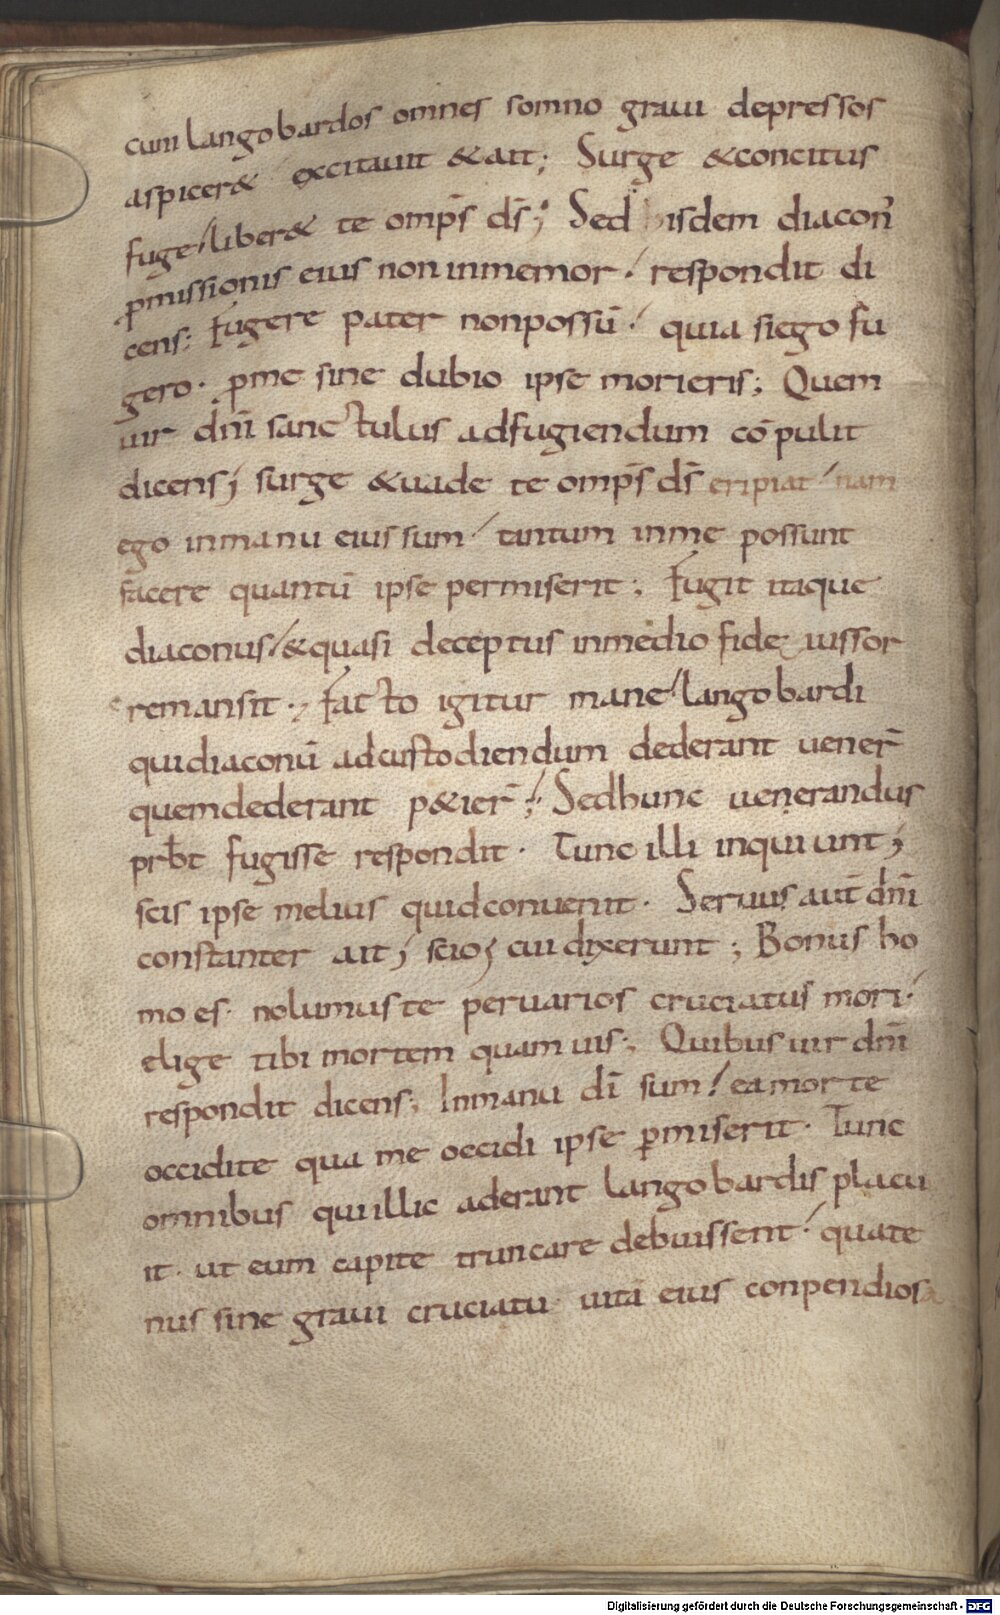 cum langobardos omnes somno graui depressos
aspicer& excitauit &ait; Surge &concitus
fuge liber& te omp̄s d̄s; Sed hisdem diacon̄
p̄missionis eius non inmemor respondit di
cens; Fugere pater nonpossū quia siego fu
gero · p̄me sine dubio ipse morieris; Quem
uir dn̄i sanctulus adfugiendum cōpulit
dicens; surge &uade te omp̄s d̄s eripiat nam
ego inmanu eius sum tantum inme possunt
facere quantū ipse permiserit; Fugit itaque
diaconus &quasi deceptus inmedio fideiussor
remansit; Facto igitur mane langobardi
quidiaconū adcustodiendum dederant uener̄
quemdederant p&ier̄; Sedhunc uenerandus
prb̄t fugisse respondit · Tunc illi inquiunt;
scis ipse melius quidconuenit · Seruus aut̄ dn̄i
constanter ait; scio; cui dixerunt; Bonus ho
mo es · nolumus te peruarios cruciatus mori
elige tibi mortem quam uis; Quibus uir dn̄i
respondit dicens; Inmanu dī sum ea morte
occidite qua me occidi ipse p̄miserit · Tunc
omnibus qui illic aderant langobardis placu
it · ut eum capite truncare debuissent quate
nus sine graui cruciatu uitā eius conpendiosa
Digitalisierung gefördert durch die Deutsche Forschungsgemeinschaft - DFG